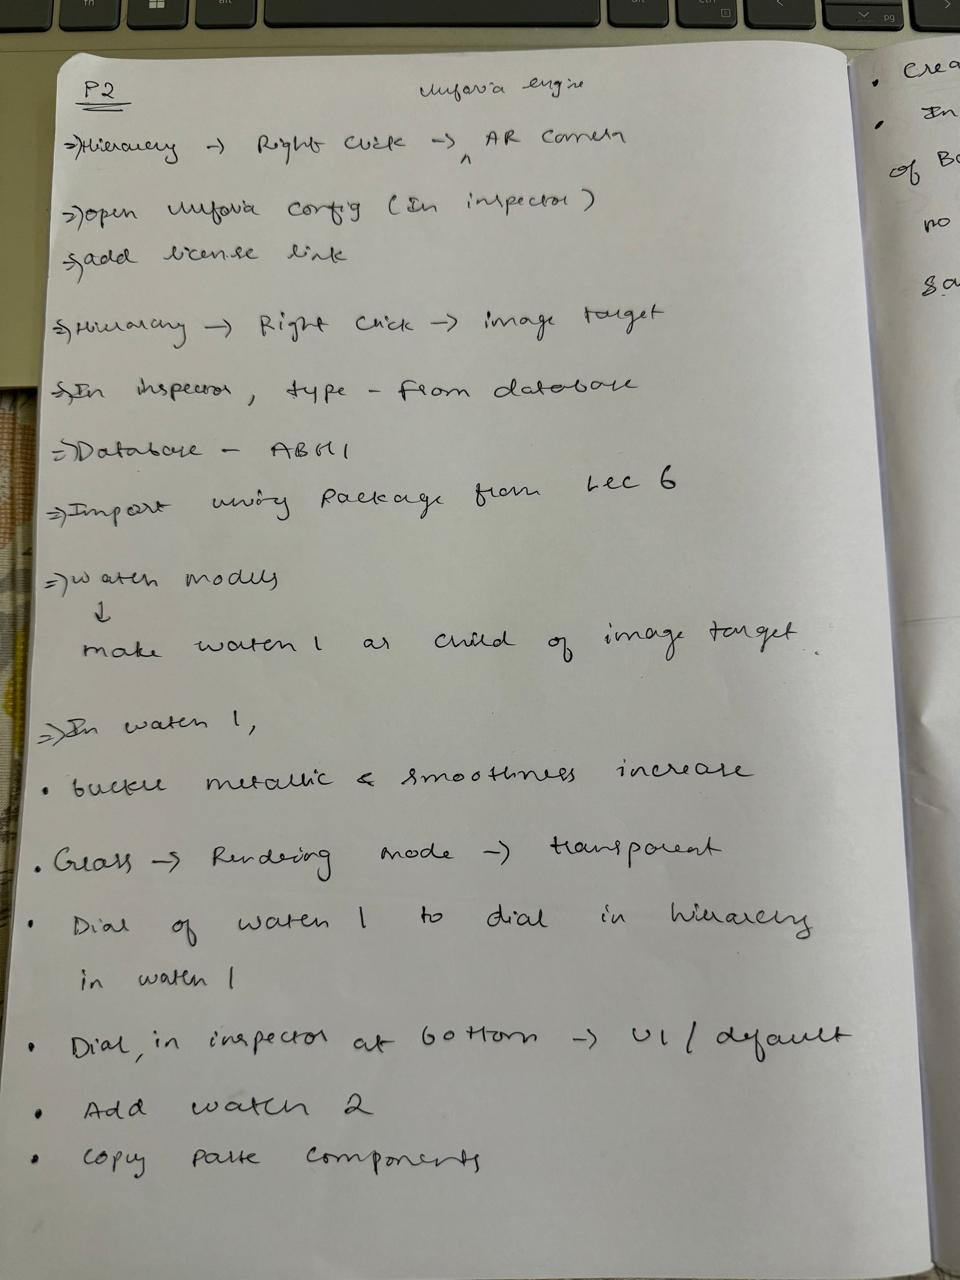 P2
vuforia engine
⇒ Hierarchy → Right click → ^ AR camera
⇒ open vuforia config (In inspector)
⇒ add license link
⇒ Hierarchy → Right click → image target
⇒ In inspector, type - from database
⇒ Database - ABHI
⇒ Import unity package from Lec 6
⇒ watch models
↓
make watch 1 as child of image target.
⇒ In watch 1,
• buckle metallic & smoothness increase
• Glass → Rendering mode → transparent
• Dial of watch 1 to dial in hierarchy
in watch 1
• Dial, in inspector at bottom → UI / default
• Add watch 2
• copy paste components
• Crea
• In
of Bo
no